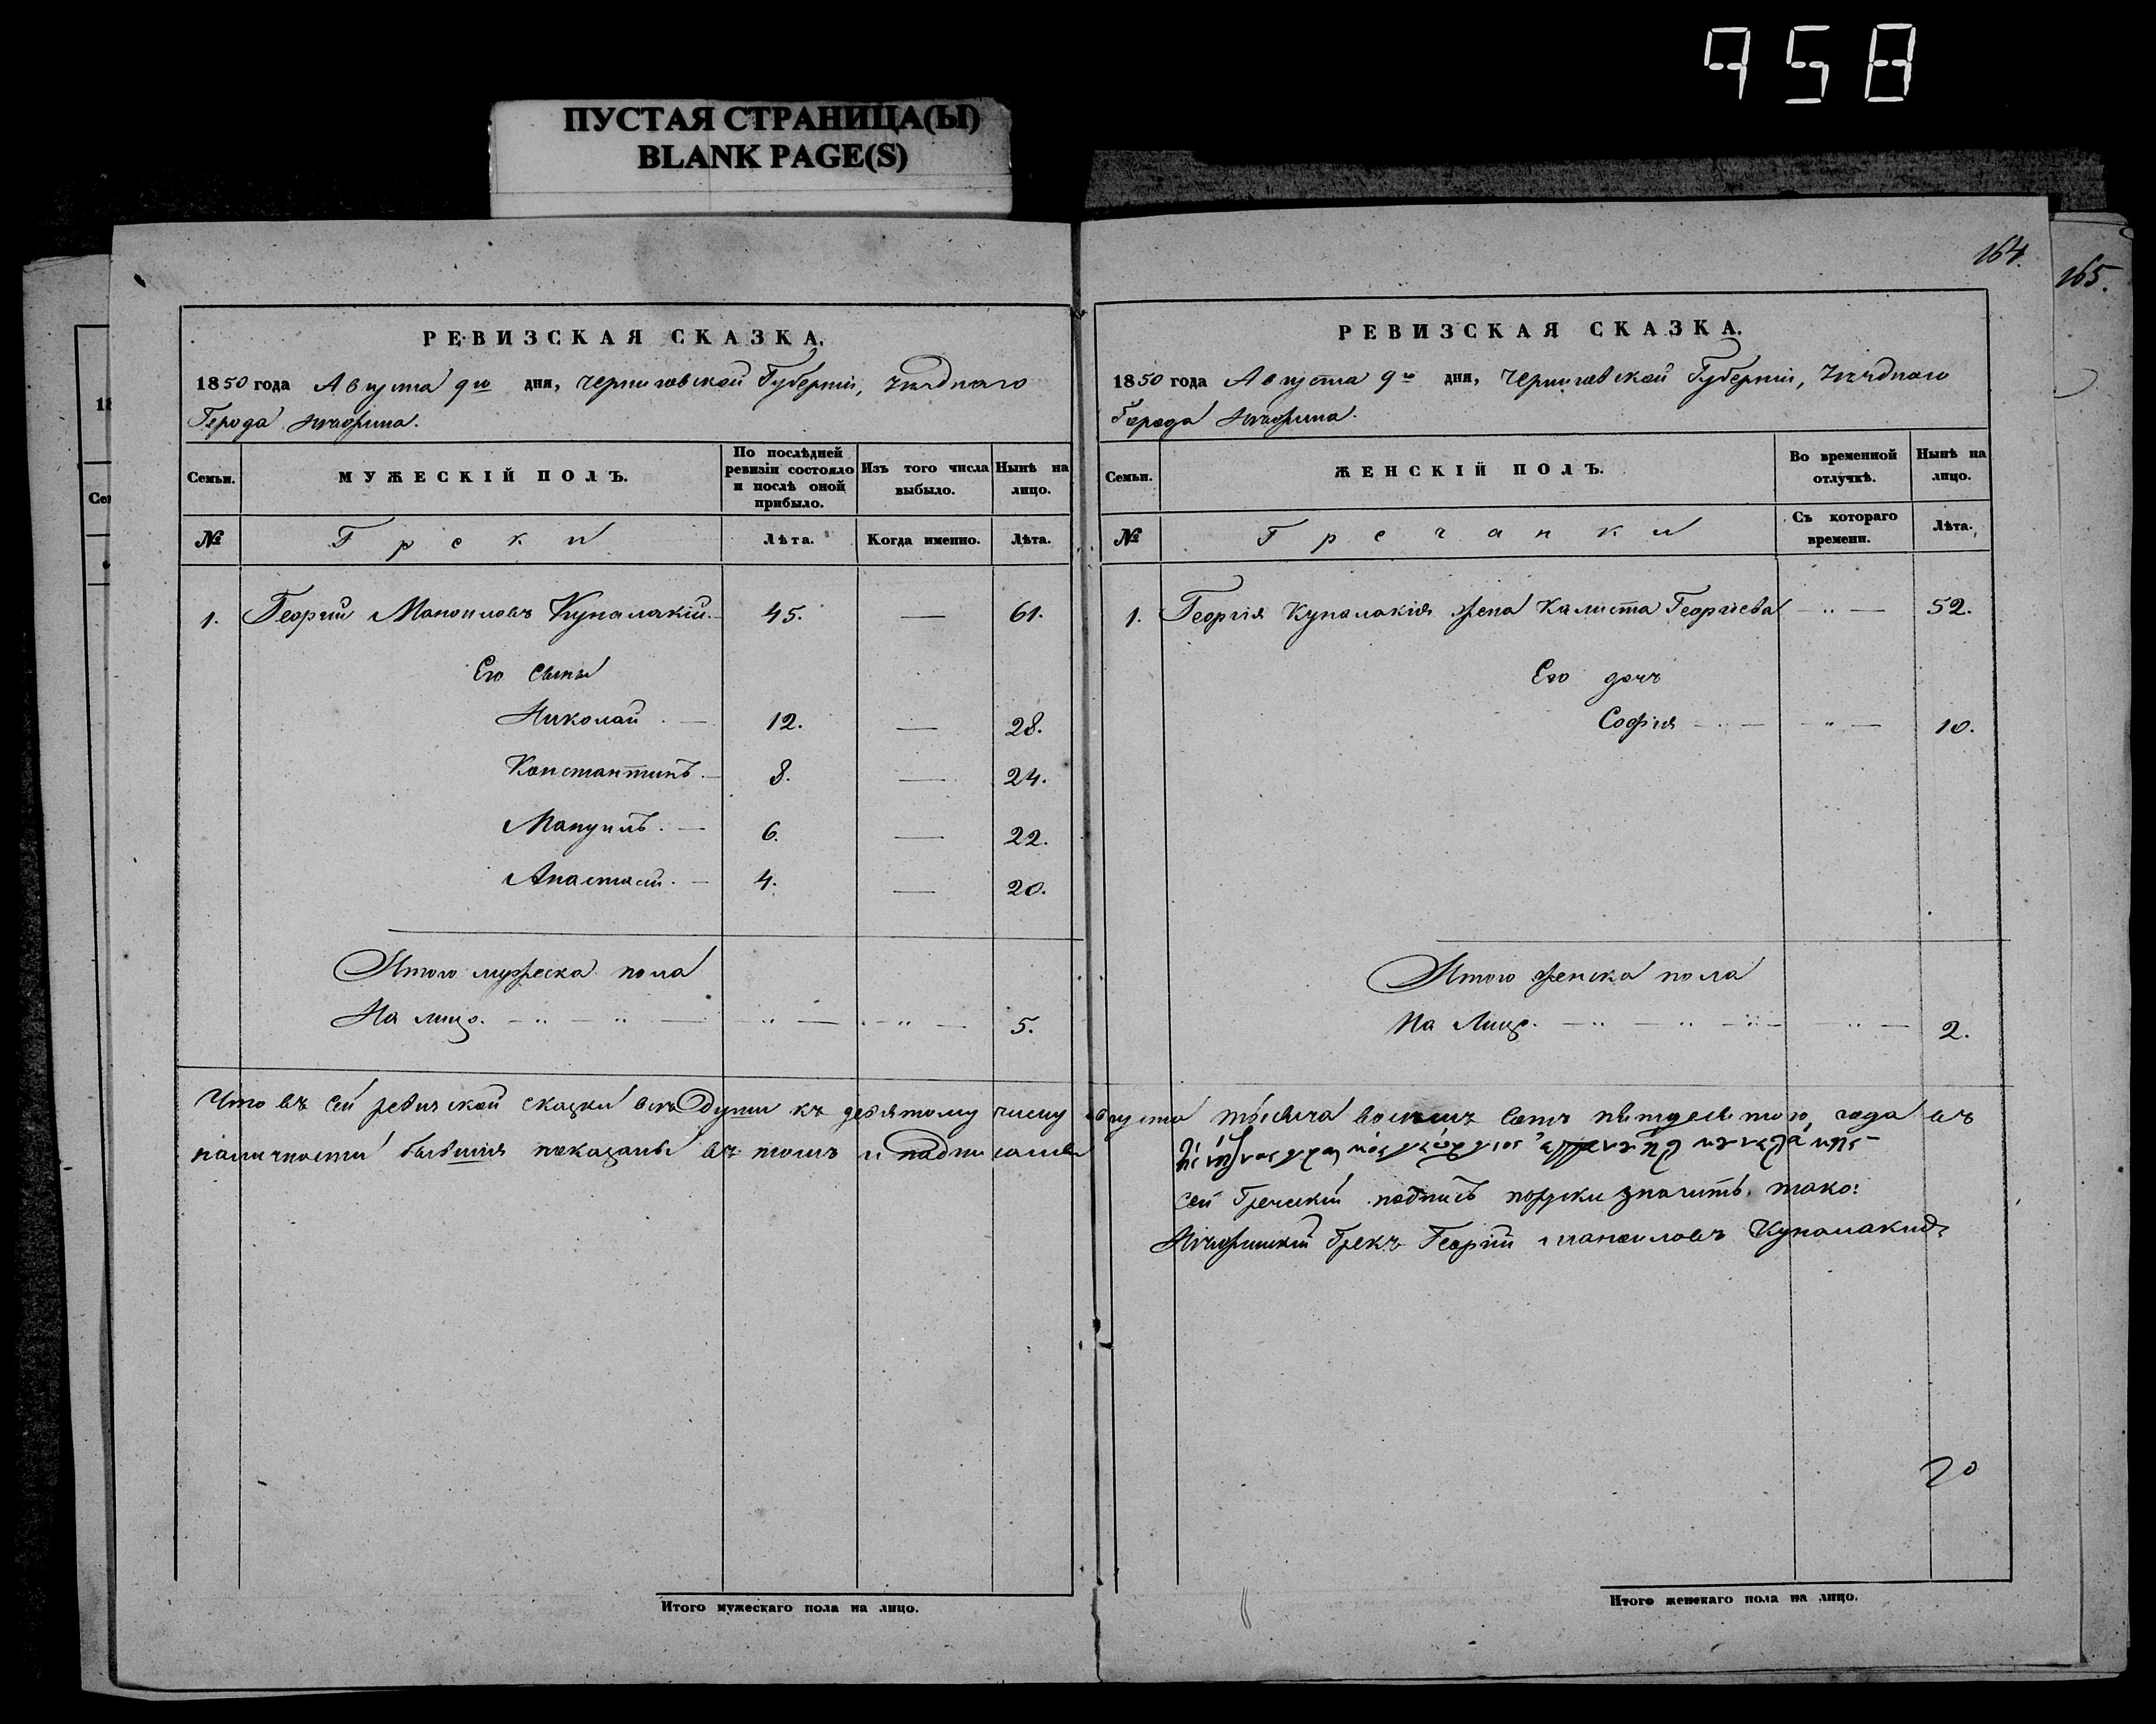 958
ПУСТАЯ СТРАНИЦА(Ы)
BLANK PAGE(S)
РЕВИЗСКАЯ СКАЗКА.
1850 года Августа 9го дня, Черниговской Губерніи, уѣзднаго
Города Нѣжина.
Семьи.
МУЖЕСКІЙ ПОЛЪ.
По послѣдней ревизіи состояло и послѣ оной прибыло.
Изъ того числа выбыло.
Нынѣ на лицо.
№
Греки
Лѣта.
Когда именно.
Лѣта.
1. Георгій Маноиловъ Купалакій. 45. — 61.
Его сыны
Николай. — 12. — 28.
Константинъ. — 8. — 24.
Мануилъ. — 6. — 22.
Анастасій. — 4. — 20.
Итого мужеска пола
На лицо. 5.
Что въ сей ревизской сказки всѣ души къ девятому числу
наличности бывшія показаны въ томъ и подписался
Итого мужескаго пола на лицо.
164.
165.
РЕВИЗСКАЯ СКАЗКА.
1850 года Августа 9го дня, Черниговской Губерніи, уѣзднаго
Города Нѣжина.
Семьи.
ЖЕНСКІЙ ПОЛЪ.
Во временной отлучкѣ.
Нынѣ на лицо.
№
Гречанки
Съ котораго времени.
Лѣта.
1. Георгія Купалакія жена Калиста Георгіева — 52.
Его дочь
Софія — 10.
Итого женска пола
На лицо. 2.
августа тысяча восемь сотъ пятдесятого года въ
сей Греческій подпись порускы значитъ тако:
Нѣжинскій Грекъ Георгій Маноиловъ Купалакій
Итого женскаго пола на лицо.